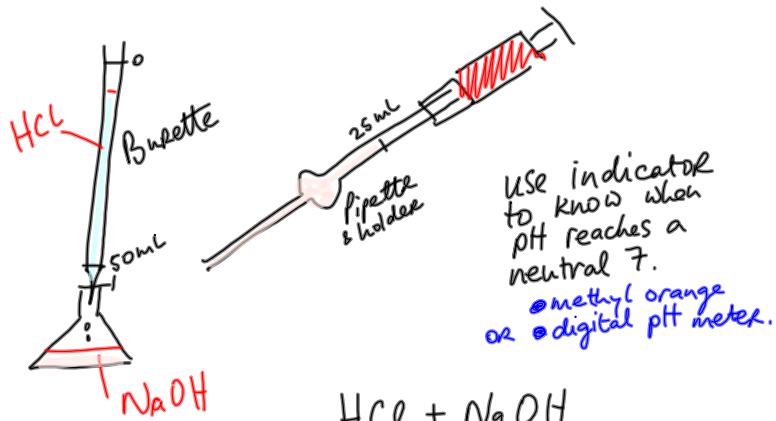 0
HCl
Burette
50mL
NaOH
25mL
Pipette
& holder
use indicator
to know when
pH reaches a
neutral 7.
• methyl orange
OR • digital pH meter.
HCl + NaOH